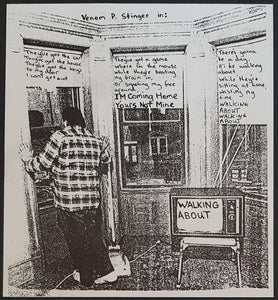 Venom P. Stinger in:
They've got the car
You've got the home
They've got the boys
to my door
I can't get out
They've got a game
Where I'm the mouse
While they're beating
my brain in,
Or spraying my face
around
I'M Coming Home
Yours Not Mine
There's gonna
be a day,
I'll be walking
about
While they're
sitting at home
wasting my
time.
WALKING
ABOUT
WALKING
ABOUT
WALKING
ABOUT